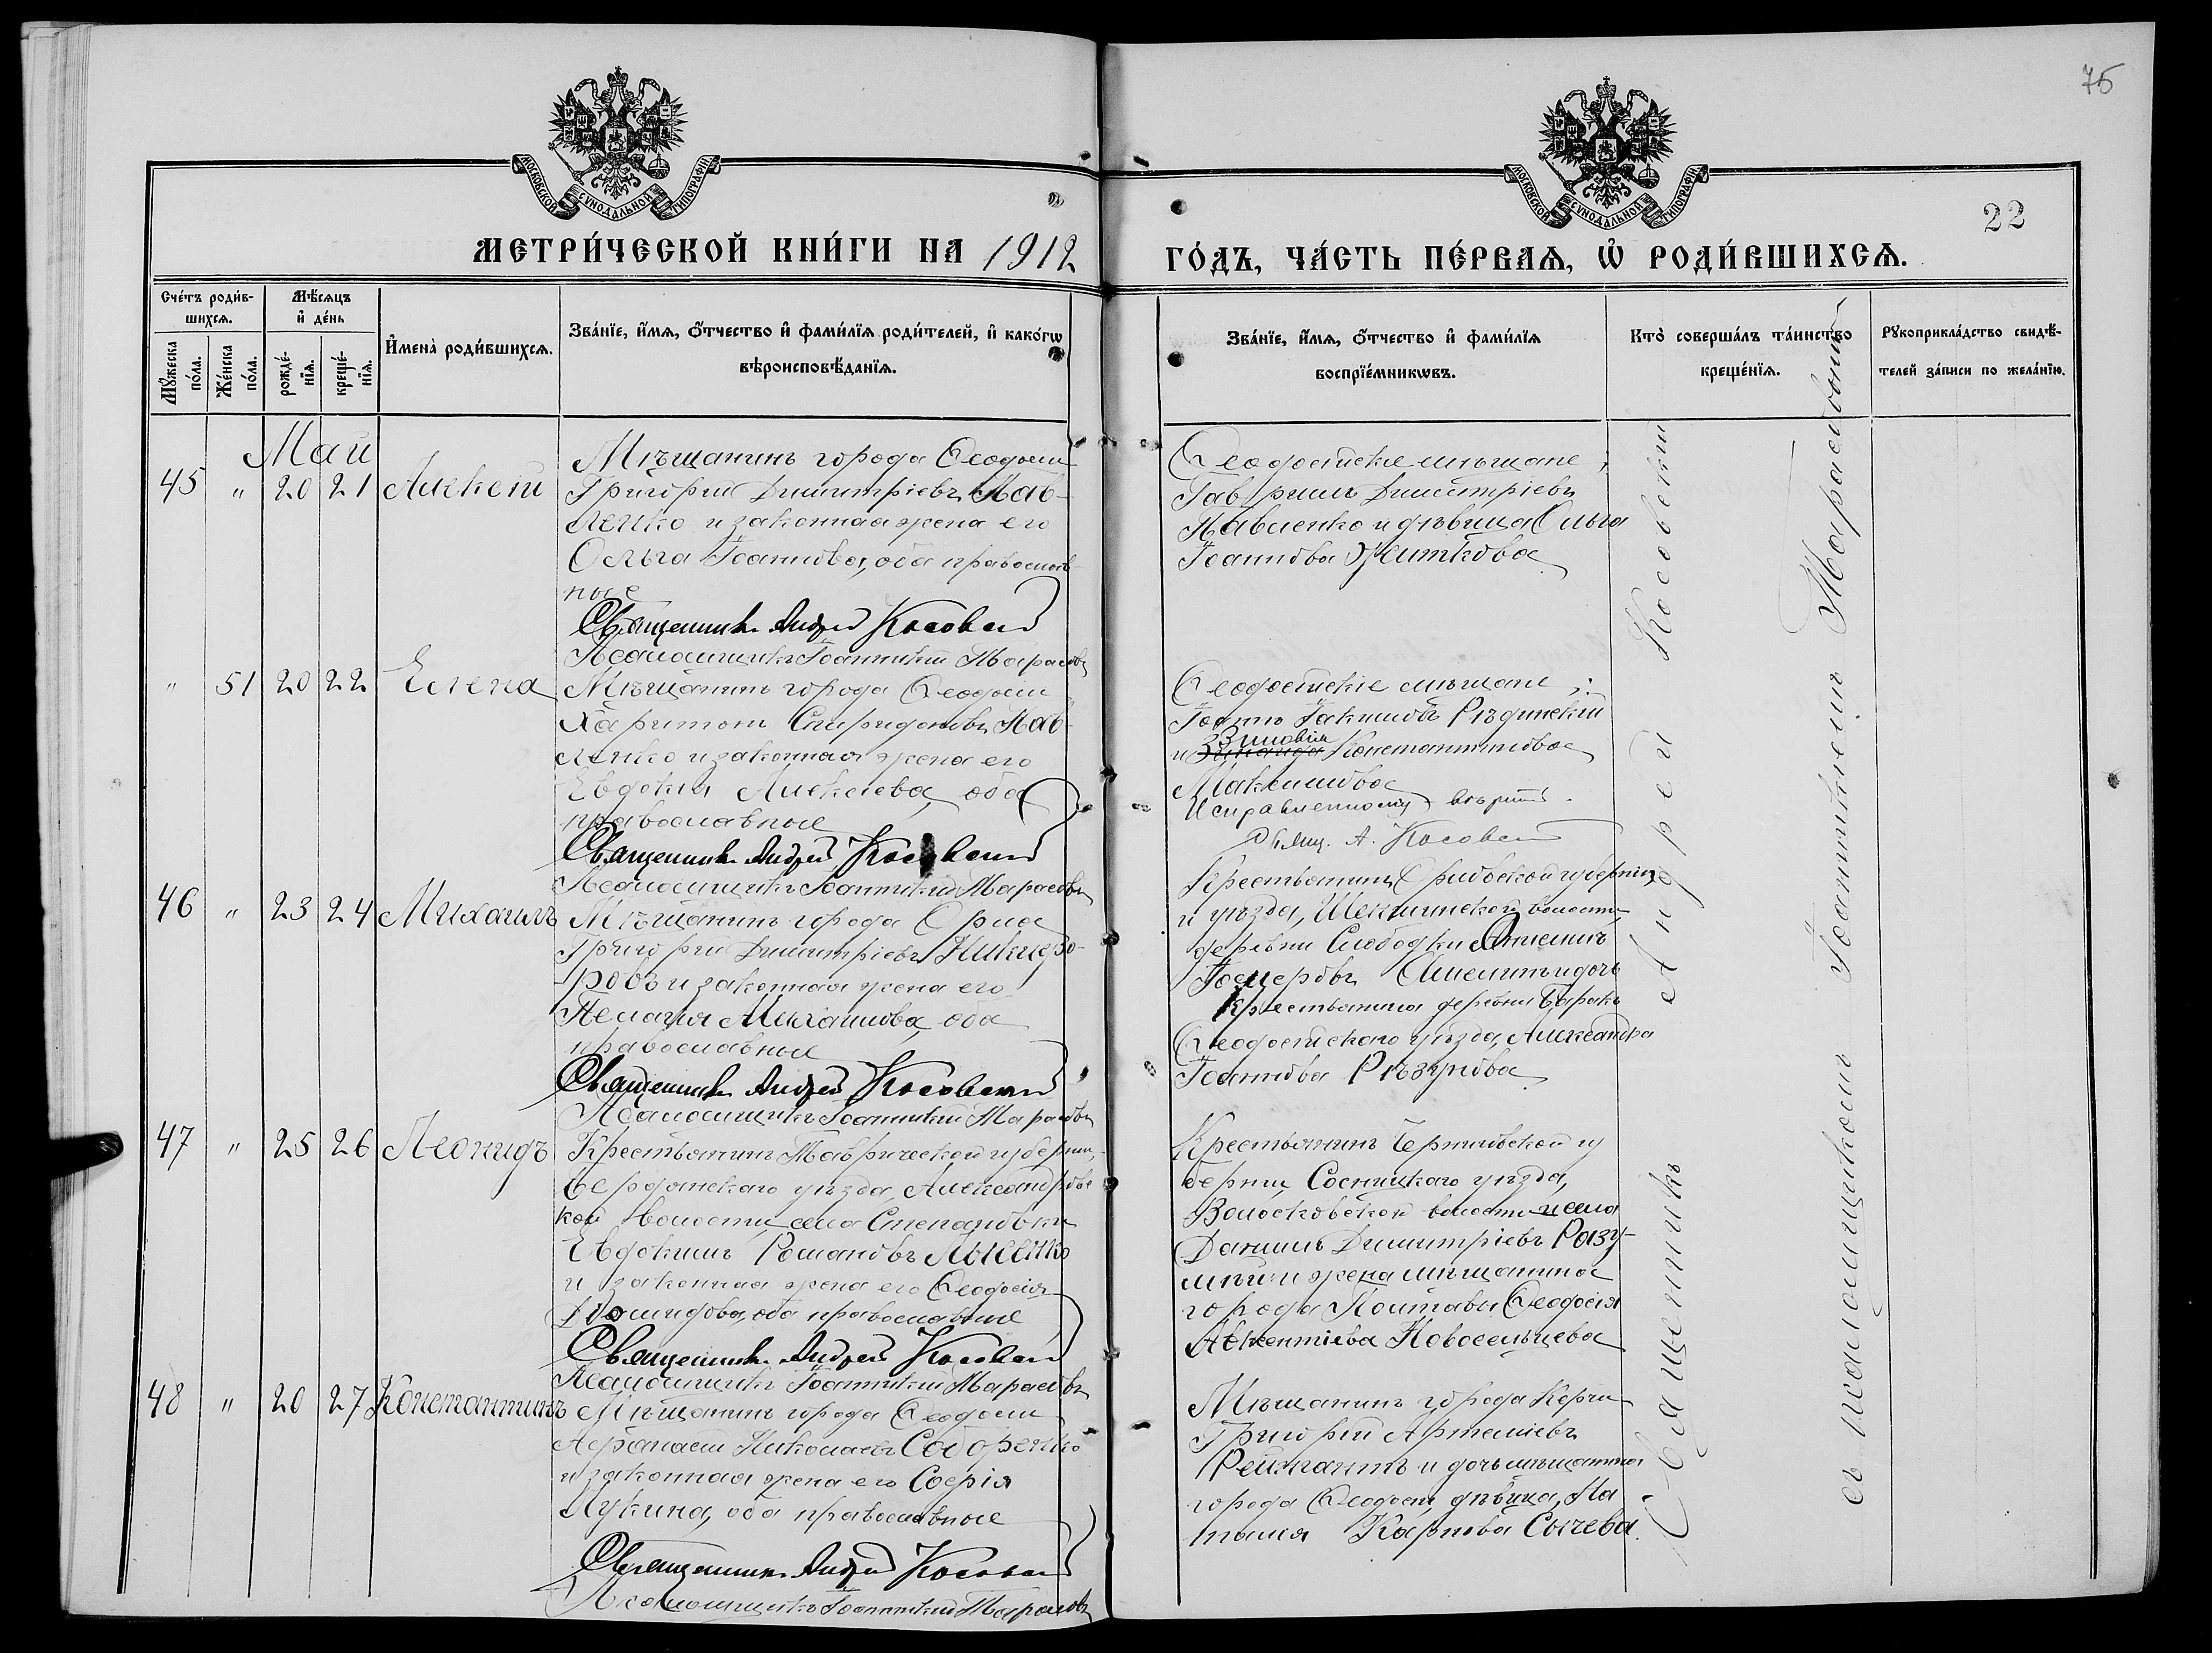 75
МОСКОВСКОЙ СѴНОДАЛЬНОЙ ТИПОГРАФІИ
МОСКОВСКОЙ СѴНОДАЛЬНОЙ ТИПОГРАФІИ
22
МЕТРИ́ЧЕСКОЙ КНИ́ГИ НА 1912
ГО́ДЪ, ЧА́СТЬ ПЕ́РВАѦ, Ѡ҆ РОДИ́ВШИХСѦ.
Сче́тъ роди́вшихсѧ.
Мꙋ́жеска по́ла.
Же́нска по́ла.
Мѣ́сѧцъ и҆ де́нь
рожде́нїѧ.
креще́нїѧ.
И҆мена̀ роди́вшихсѧ.
Зва́нїе, и҆́мѧ, ѻ҆́тчество и҆ фами́лїѧ роди́телей, и҆ како́гѡ
вѣроисповѣ́данїѧ.
Зва́нїе, и҆́мѧ, ѻ҆́тчество и҆ фами́лїѧ
воспрїе́мникѡвъ.
Кто̀ соверша́лъ та́инство
креще́нїѧ.
Рꙋкоприкла́дство свидѣ́-
телей за́писи по жела́нїю.
Май
45 " 20 21 Алексій
Мѣщанинъ города Ѳеодосіи
Григорій Димитріевъ Пав-
ленко и законная жена его
Ольга Іоаннова, оба православ-
ные
Священникъ Андрей Косовскій
Псаломщикъ Іоанникій Марасовъ
Ѳеодосійскіе мѣщане:
Гавріилъ Димитріевъ
Павленко и дѣвица Ольга
Іоаннова Житкова
" 51 20 22 Елена
Мѣщанинъ города Ѳеодосіи
Харитонъ Спиридоновъ Пав-
ленко и законная жена его
Евдокія Алексіева, оба
православные
Священникъ Андрей Косовскій
Псаломщикъ Іоанникій Марасовъ
Ѳеодосійскіе мѣщане:
Іоаннъ Іакимовъ Рѣдинскій
Зиновія
и Зинаида Константинова
Максимова
Исправленному вѣрить.
Свящ. А. Косовскій
46 " 23 24 Михаилъ
Мѣщанинъ города Орла
Григорій Димитріевъ Никифо-
ровъ и законная жена его
Пелагія Михаилова, оба
православные
Священникъ Андрей Косовскій
Псаломщикъ Іоанникій Марасовъ
Крестьянинъ Орловской губерніи
и уѣзда, волости
деревни Слободки
и дочь
крестьянина деревни Баракъ
Ѳеодосійскаго уѣзда, Александра
Іоаннова Рѣзунова
47 " 25 26 Леонидъ
Крестьянинъ Таврической губерніи,
Бердянскаго уѣзда, Александровс
кой волости, села Степановки
Евдокимъ Романовъ Лысенко
и законная жена его Ѳеодосія
Діомидова, оба православные
Священникъ Андрей Косовскій
Псаломщикъ Іоанникій Марасовъ
Крестьянинъ Черниговской гу
берніи, Сосницкаго уѣзда,
Волосковской волости и села
Даніилъ Димитріевъ Разу-
мѣй и жена мѣщанина
города Полтавы Ѳеодосія
Авксентіева Новосельцева
48 " 20 27 Константинъ
Мѣщанинъ города Ѳеодосіи
Аѳанасій Николаевъ Сидоренко
и законная жена его Софія
Лукина, оба православные
Священникъ Андрей Косовскій
Псаломщикъ Іоанникій Марасовъ
Мѣщанинъ города Керчи
Григорій Артеміевъ
и дочь мѣщанина
города Ѳеодосіи, дѣвица, На
талія Карпова Сычева.
Священникъ Андрей Косовскій
съ псаломщикомъ Іоанникіемъ Марасовымъ